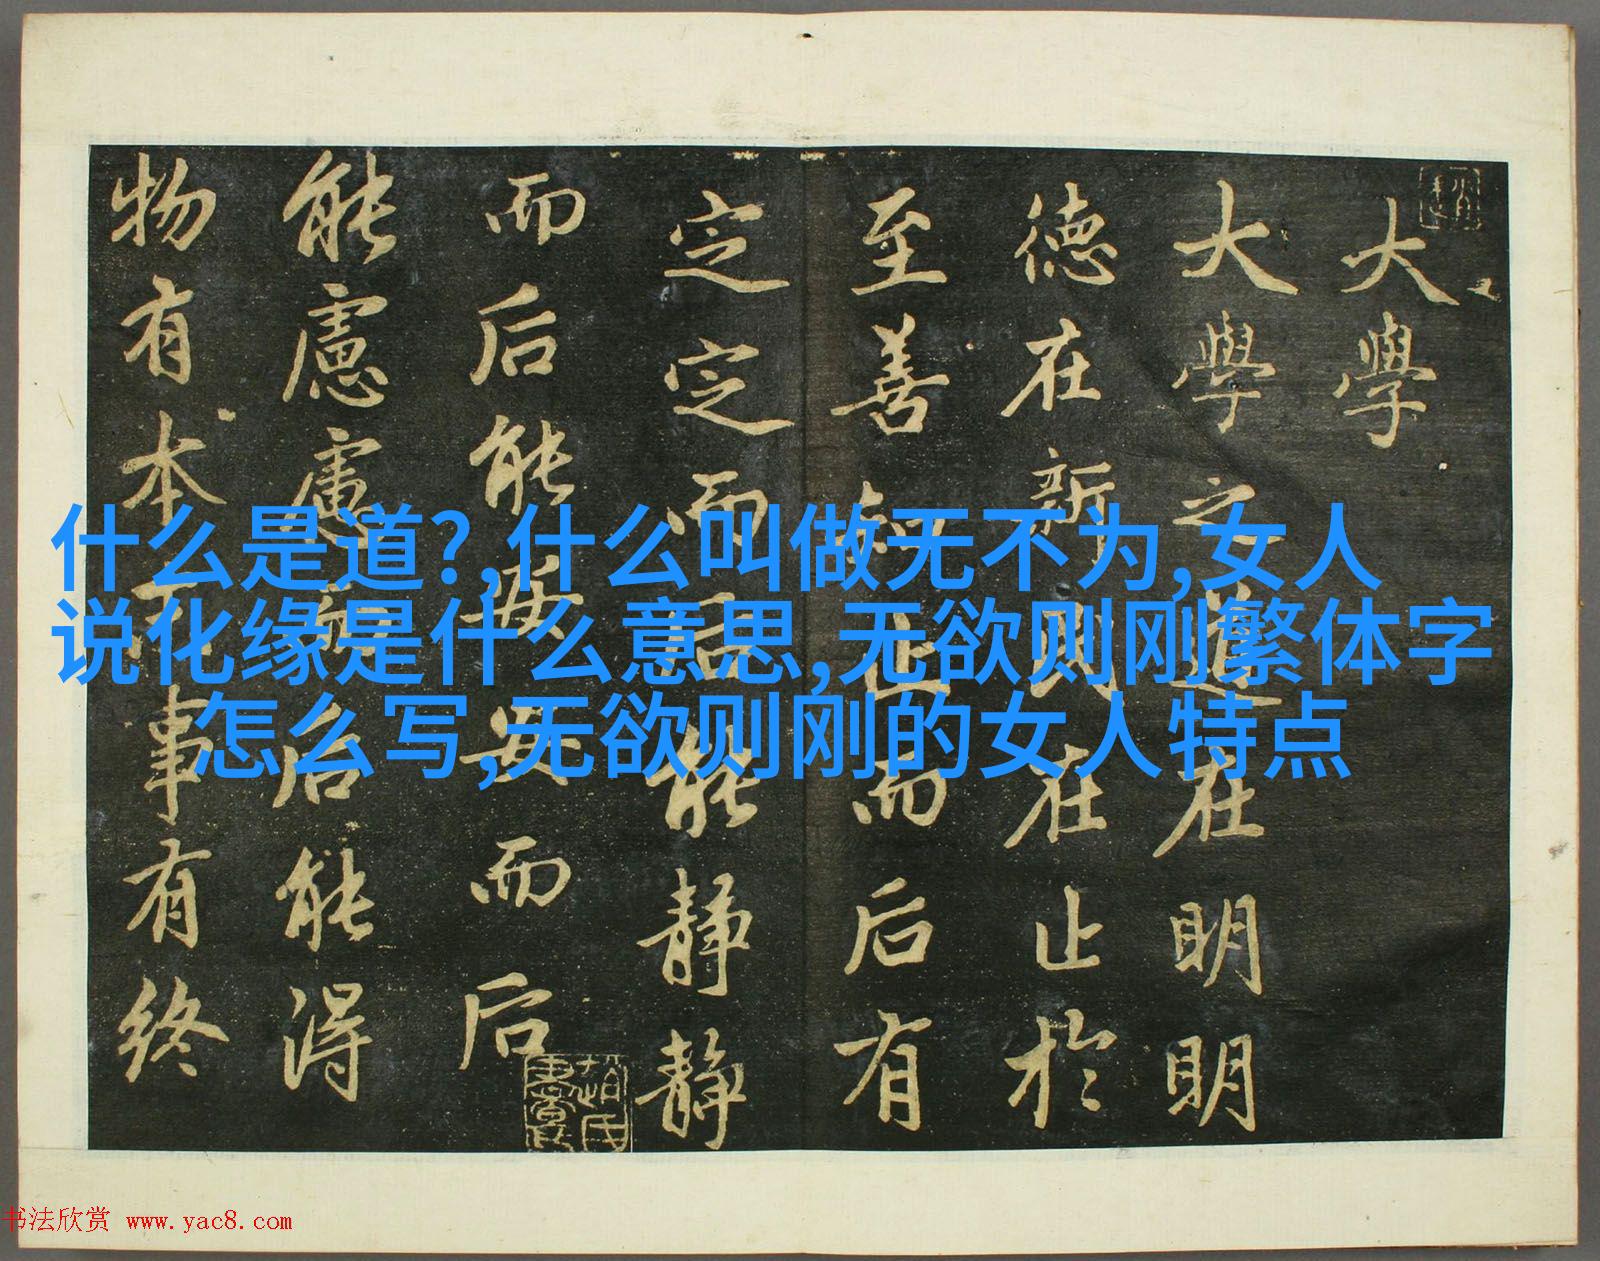 大學
大學之道在明明
德在新民在止於
至善知止而后有
定定而后能靜靜
而后能安安而后
能慮慮而后能得
物有本末事有終
什么是道?,什么叫做无不为,女人
说化缘是什么意思,无欲则刚繁体字
怎么写,无欲则刚的女人特点
书法欣赏 www.yac8.com